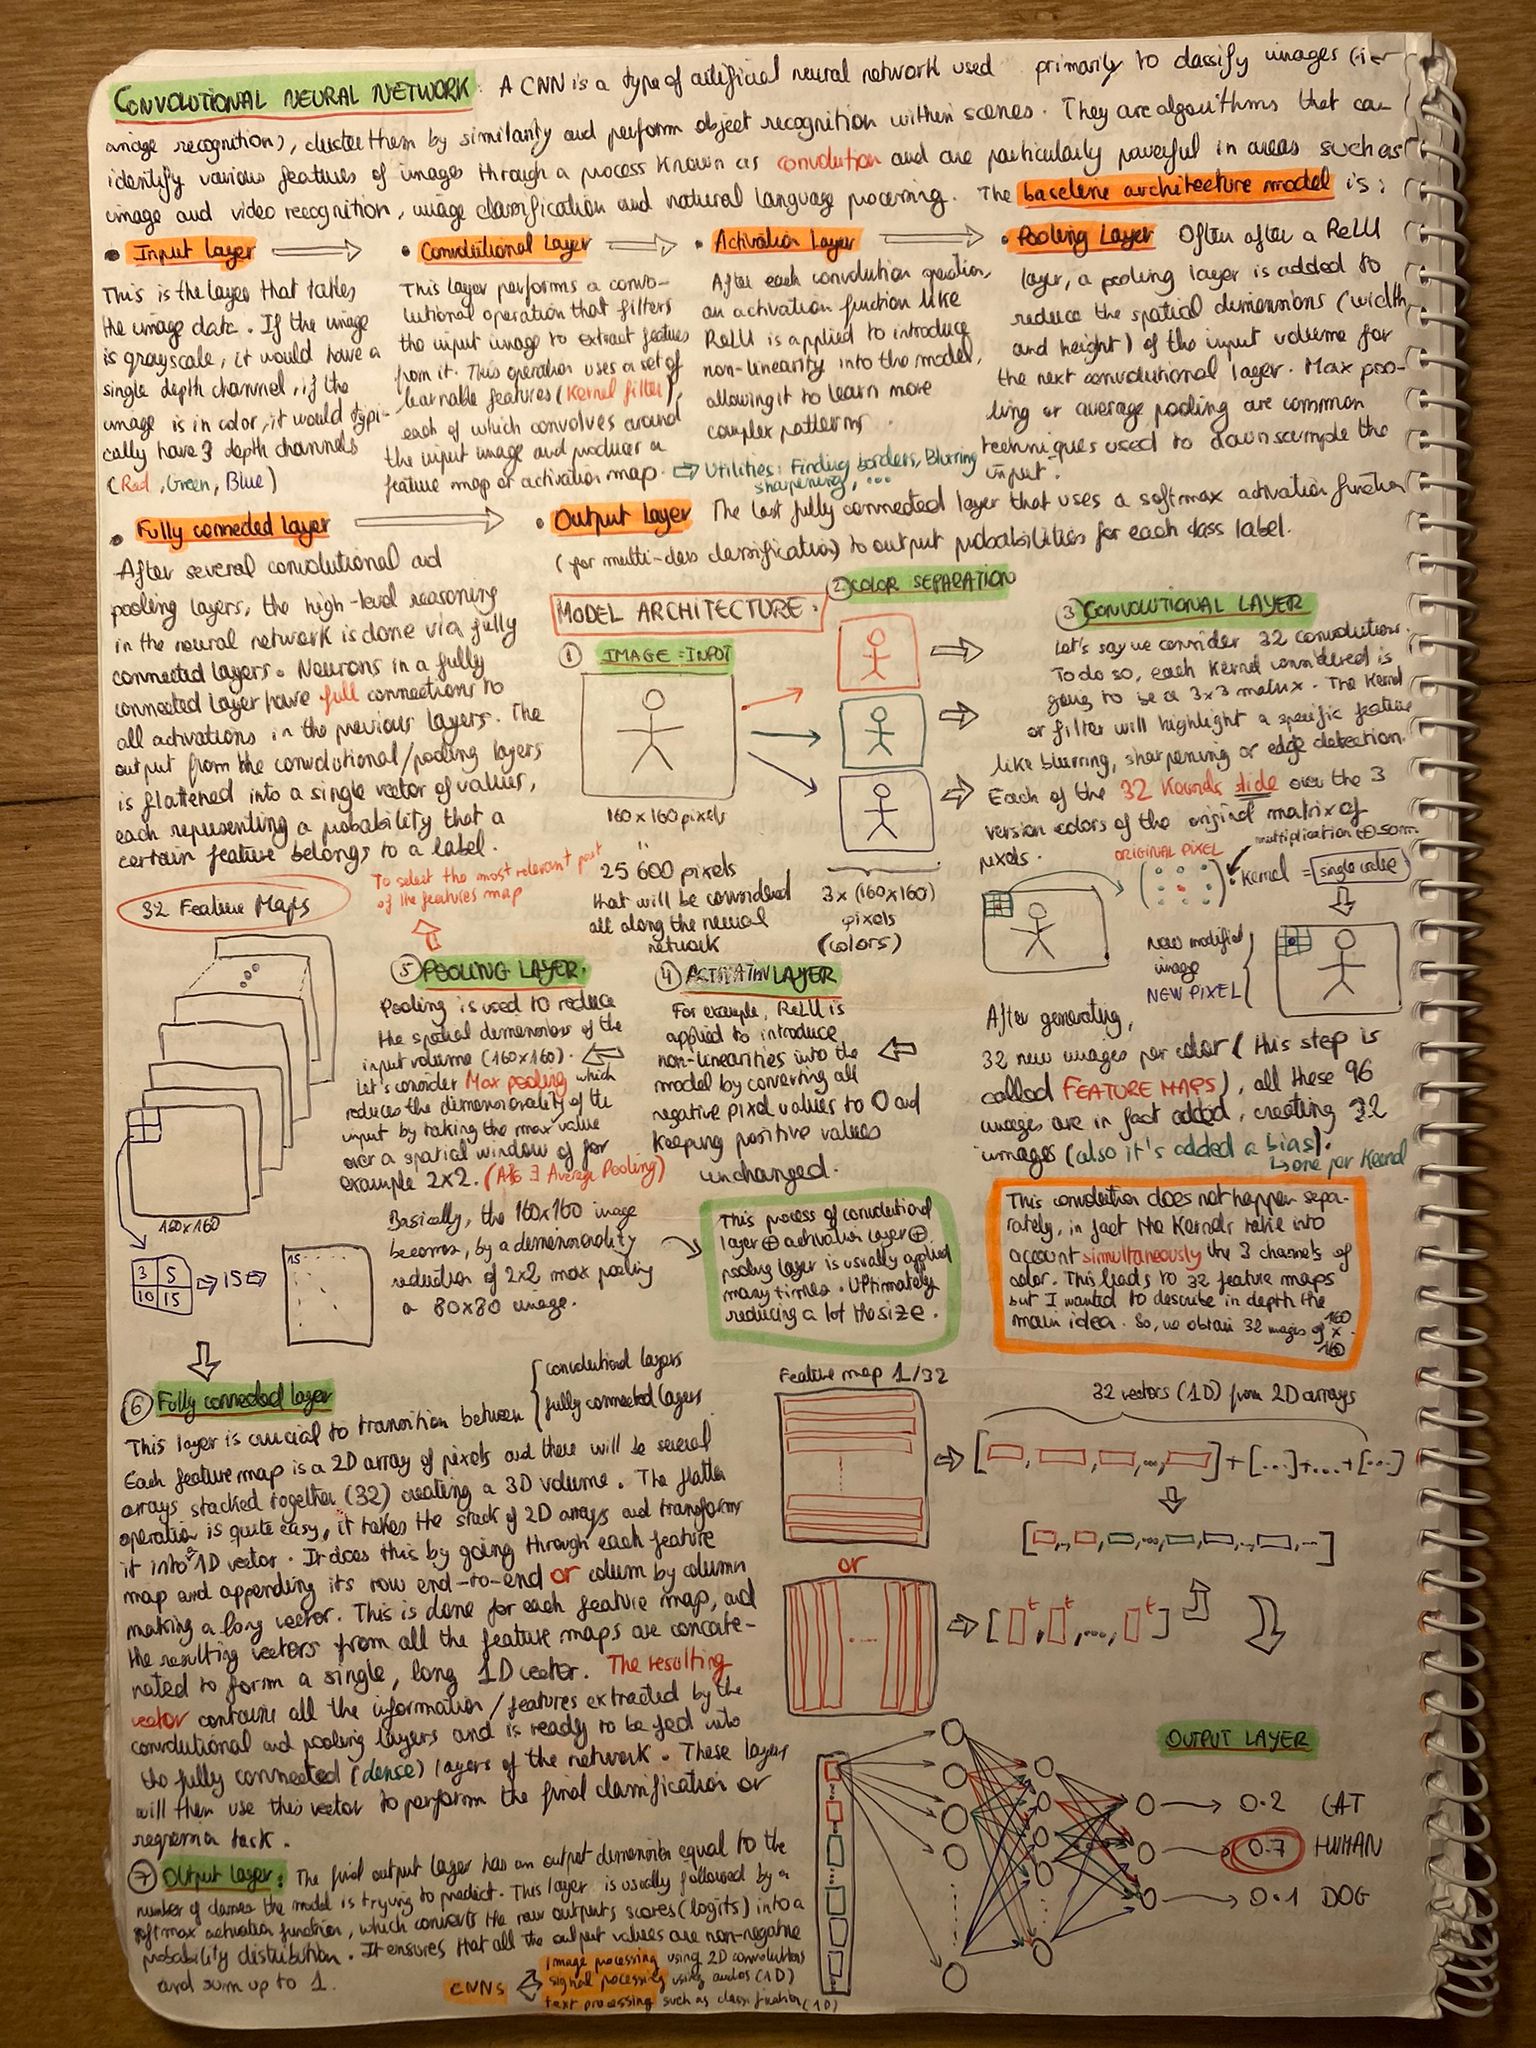 CONVOLUTIONAL NEURAL NETWORK: A CNN is a type of artificial neural network used primarily to classify images (i-e
image recognition), cluster them by similarity and perform object recognition within scenes. They are algorithms that can
identify various features of images through a process known as convolution and are particularly powerful in areas such as
image and video recognition, image classification and natural language processing. The baseline architecture model is:
• Input Layer
This is the layer that takes
the image data. If the image
is grayscale, it would have a
single depth channel, if the
image is in color, it would typi-
cally have 3 depth channels
(Red, Green, Blue)
• Convolutional Layer
This layer performs a convo-
lutional operation that filters
the input image to extract features
from it. This operation uses a set of
learnable features (Kernel filter),
each of which convolves around
the input image and produce a
feature map or activation map. ⇨ Utilities: Finding borders, Blurring
sharpening, ...
• Activation Layer
After each convolution operation,
an activation function like
ReLU is applied to introduce
non-linearity into the model,
allowing it to learn more
complex patterns.
• Pooling Layer Often after a ReLU
layer, a pooling layer is added to
reduce the spatial dimensions (width
and height) of the input volume for
the next convolutional layer. Max poo-
ling or average pooling are common
techniques used to downsample the
input.
• Fully connected layer
After several convolutional ad
pooling layers, the high-level reasoning
in the neural network is done via fully
connected layers. Neurons in a fully
connected layer have full connections to
all activations in the previous layers. The
output from the convolutional/pooling layers
is flattened into a single vector of values,
each representing a probability that a
certain feature belongs to a label.
• Output Layer The last fully connected layer that uses a softmax activation function
(for multi-class classification) to output probabilities for each class label.
MODEL ARCHITECTURE.
① IMAGE = INPUT
160x160 pixels
"
25 600 pixels
that will be considered
all along the neural
network
② COLOR SEPARATION
3x (160x160)
pixels
(colors)
③ CONVOLUTIONAL LAYER
Let's say we consider 32 convolutions.
To do so, each Kernel considered is
going to be a 3x3 matrix. The Kernel
or filter will highlight a specific feature
like blurring, sharpening or edge detection.
Each of the 32 Kernels slide over the 3
version colors of the original matrix of
pixels.
multiplication ⊕ sum
ORIGINAL PIXEL
Kernel = single value
New modified
image
NEW PIXEL
After generating,
32 new images per color (this step is
called FEATURE MAPS), all these 96
images are in fact added, creating 32
images (also it's added a bias).
↳ one per Kernel
This convolution does not happen sepa-
rately, in fact the Kernels take into
account simultaneously the 3 channels of
color. This leads to 32 feature maps
but I wanted to describe in depth the
main idea. So, we obtain 32 images of 160
x
160
④ ACTIVATION LAYER
For example, ReLU is
applied to introduce
non-linearities into the
model by converting all
negative pixel values to 0 and
keeping positive values
unchanged.
To select the most relevant part
of the features map
⑤ POOLING LAYER.
Pooling is used to reduce
the spatial dimensions of the
input volume (160x160).
Let's consider Max pooling which
reduces the dimensionality of the
input by taking the max value
over a spatial window of for
example 2x2. (Also ∃ Average Pooling)
Basically, the 160x160 image
becomes, by a dimensionality
reduction of 2x2 max pooling
a 80x80 image.
This process of convolutional
layer ⊕ activation layer ⊕
pooling layer is usually applied
many times. Ultimately
reducing a lot the size.
32 Feature Maps
160x160
3 5
10 15
⇨ 15 ⇨
15
⑥ Fully connected layer
This layer is crucial to transition between { convolutional layers
fully connected layers
Each feature map is a 2D array of pixels and there will be several
arrays stacked together (32) creating a 3D volume. The flatten
operation is quite easy, it takes the stack of 2D arrays and transforms
it into a 1D vector. It does this by going through each feature
map and appending its row end-to-end or colum by column
making a long vector. This is done for each feature map, and
the resulting vectors from all the feature maps are concate-
nated to form a single, long 1D vector. The resulting
vector contains all the information/features extracted by the
convolutional and pooling layers and is ready to be fed into
the fully connected (dense) layers of the network. These layers
will then use this vector to perform the final classification or
regression task.
Feature map 1/32
or
32 vectors (1D) from 2D arrays
[ , , , ..., ] + [...] + ... + [...]
[ t, t, ..., t ]
⑦ Output layer: The final output layer has an output dimension equal to the
number of classes the model is trying to predict. This layer is usually followed by a
softmax activation function, which converts the raw outputs scores (logits) into a
probability distribution. It ensures that all the output values are non-negative
and sum up to 1.
CNNs
image processing using 2D convolutions
signal processing using audios (1D)
text processing such as classification (1D)
OUTPUT LAYER
0.2 CAT
0.7 HUMAN
0.1 DOG